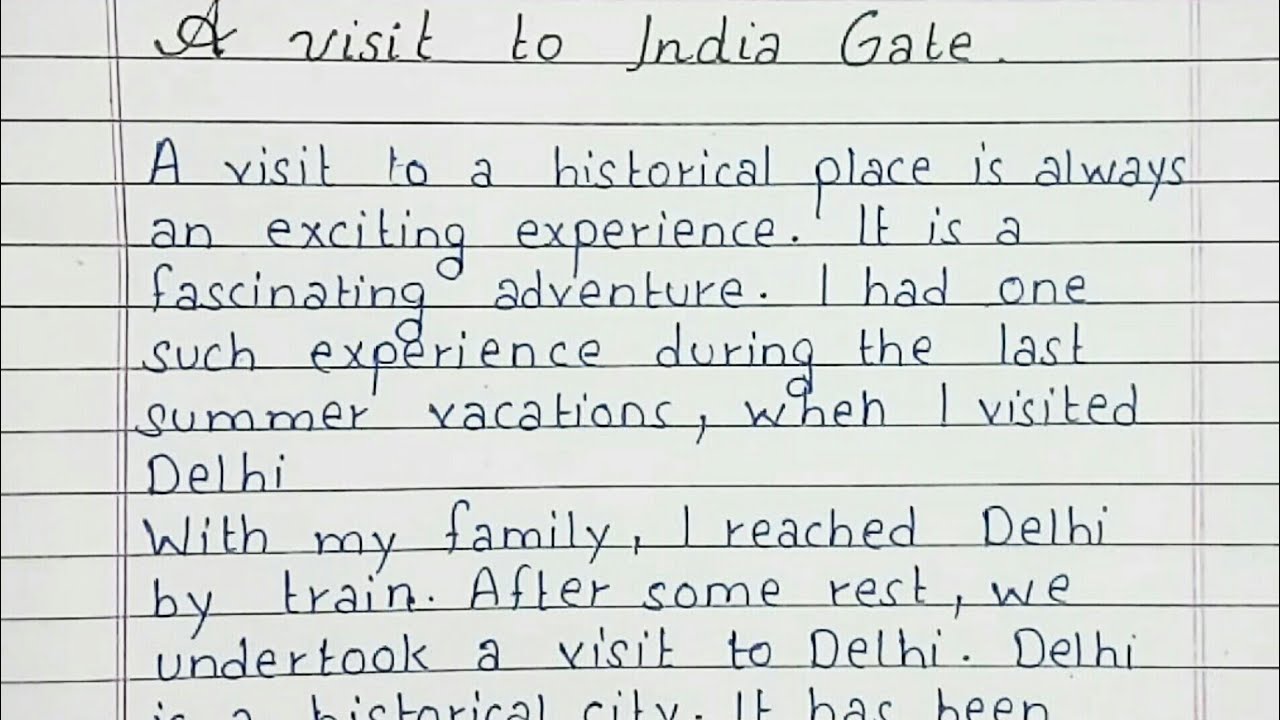 A visit to India Gate.
A visit to a historical place is always
an exciting experience. It is a
fascinating adventure. I had one
such experience during the last
summer vacations, when I visited
Delhi
With my family, I reached Delhi
by train. After some rest, we
undertook a visit to Delhi. Delhi
is a historical city. It has been